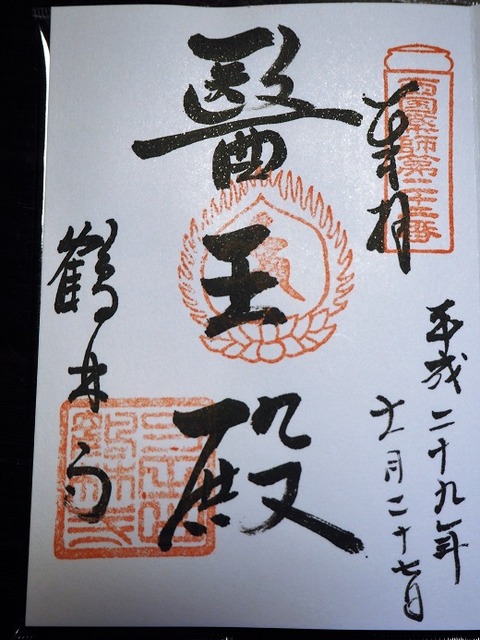 西国薬師第二十二番
奉拝
平成二十九年
十一月二十七日
醫王殿
鶴林寺